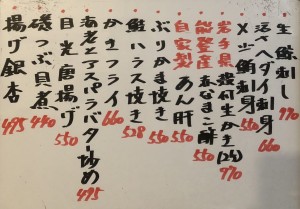 生鯨刺し 770
活へダイ刺身 660
メジマグロ刺身 550
岩手県 殻付生かき(2ケ) 770
能登産 赤なまこ酢 550
自家製 あん肝 550
ぶりかま焼き 550
鮭ハラス焼き 528
かきフライ 660
海老とアスパラバター炒め 495
目光唐揚げ 550
磯つぶ貝煮 440
揚げ銀杏 495